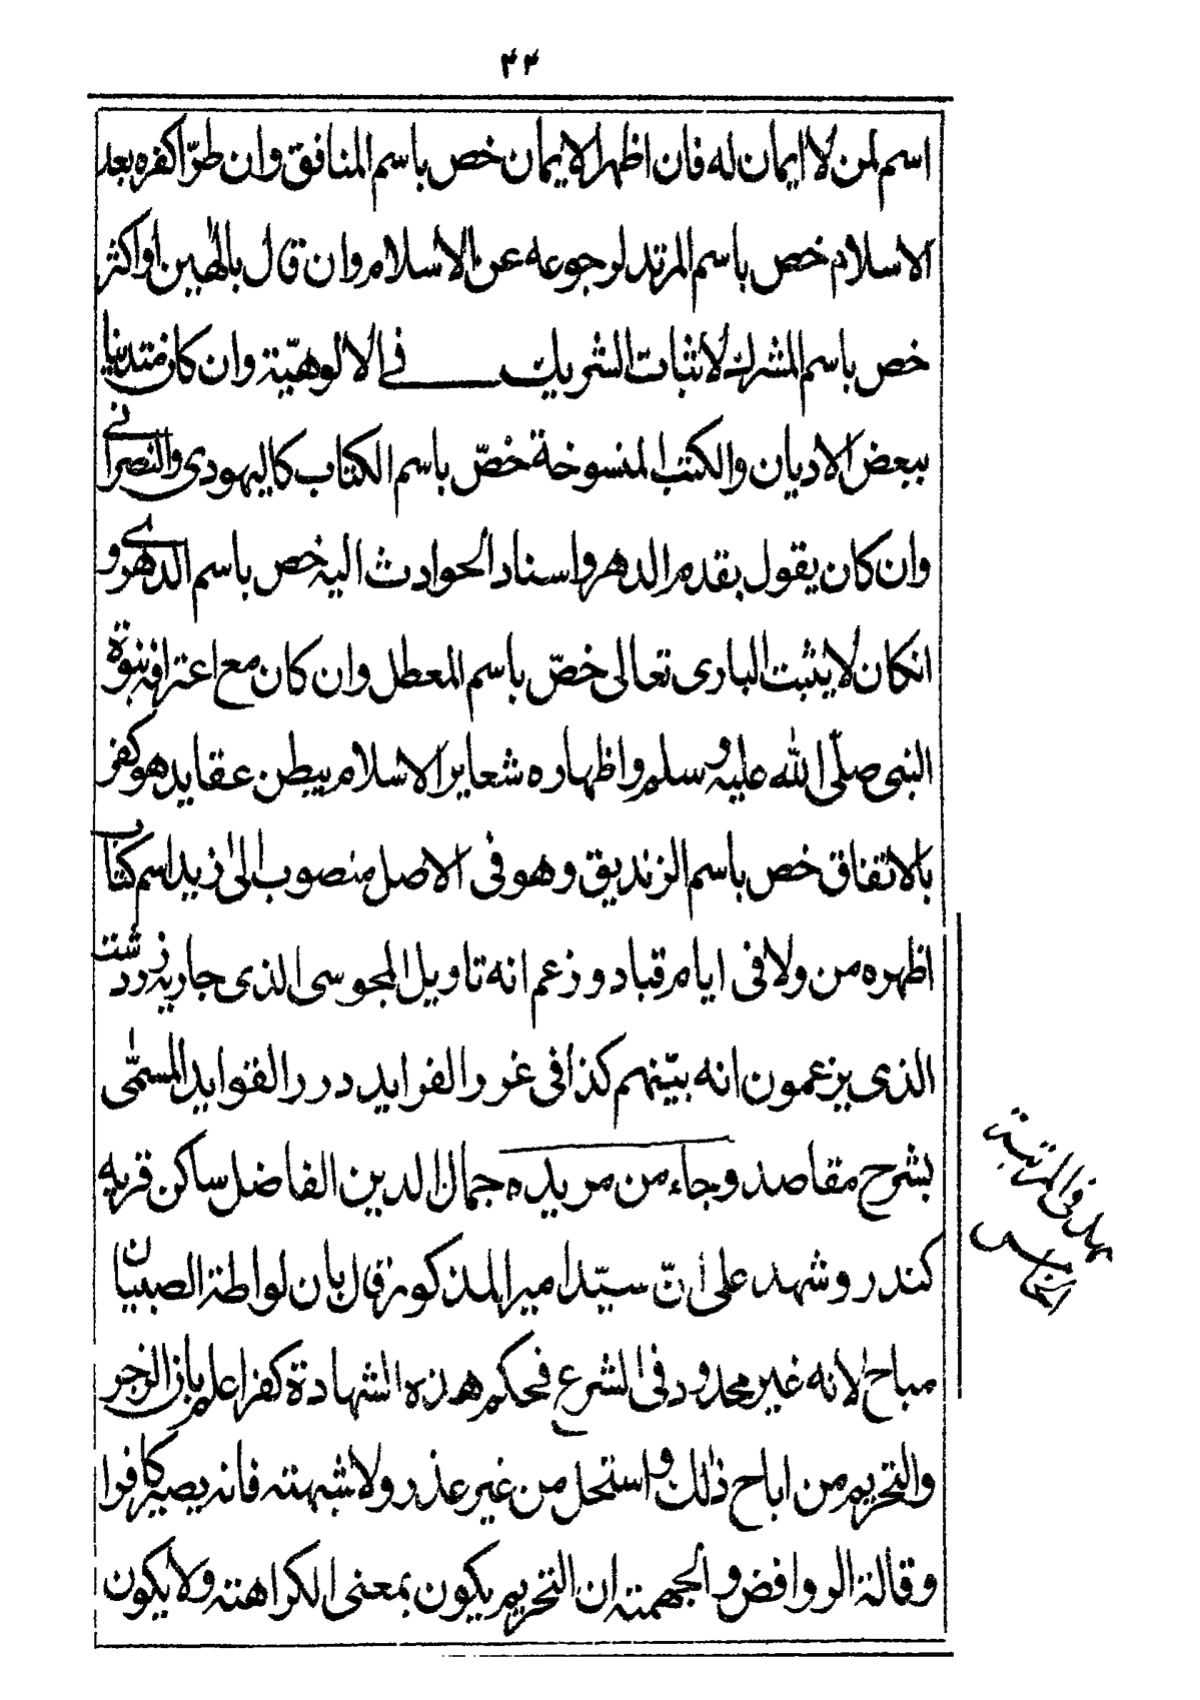 ۳۳
اسم لمن لا ايمان له فان اظهر الايمان خص باسم المنافق وان طرّا كفره بعد
الاسلام خص باسم المرتد لرجوعه عن الاسلام وان قال بالهين او اكثر
خص باسم المشرك لاثبات الشريك في الالوهيّة وان كان متدينا
ببعض الاديان والكتب المنسوخة خصّ باسم الكتاب كاليهودى والنصرانى
وان كان يقول بقدم الدهر واسناد الحوادث اليه خص باسم الدهرى و
انكان لا يثبت البارى تعالى خصّ باسم المعطل وان كان مع اعترافه بنبوة
النبى صلّى الله عليه وسلم واظهاره شعاير الاسلام يبطن عقايد هو كفر
بالاتفاق خص باسم الزنديق وهو فى الاصل منصوب الى زيد اسم كتاب
اظهره من ولا فى ايام قباد و زعم انه تاويل المجوسى الذى جاء به زردشت
الذى يزعمون انه بيّنهم كذا فى غرر الفرايد درر الفوايد المسمّى
بشرح مقاصد وجاء من مريده جمال الدين الفاضل ساكن قريه
كندر وشهد على انّ سيّد امير المذكور قال بان لواطة الصبيان
مباح لانه غير محدود فى الشرع فحكم هذه الشهادة كفر اعلم بان الزجر
والتحريم من اباح ذلك واستحل من غير عذر ولا شبهته فانه يصير كافرا
وقالة الروافض والجهمته ان التحريم يكون بمعنى الكراهته ولا يكون
فى المرتبة